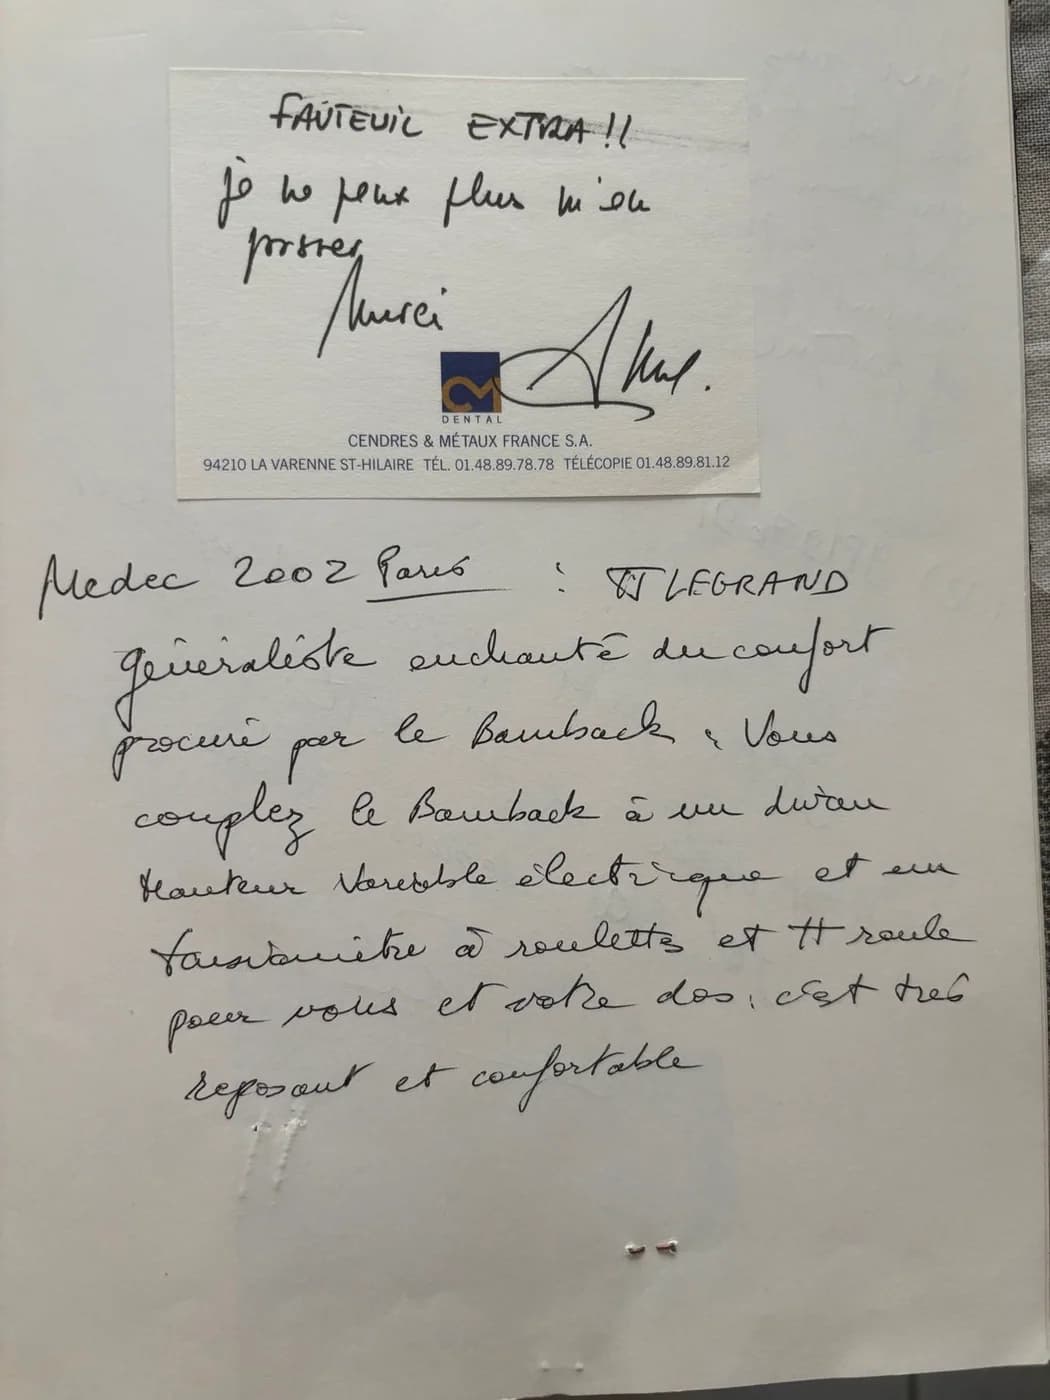 FAUTEUIL EXTRA !!
je ne peux plus m'en
passer
Merci
CM
DENTAL
CENDRES & MÉTAUX FRANCE S.A.
94210 LA VARENNE ST-HILAIRE TÉL. 01.48.89.78.78 TÉLÉCOPIE 01.48.89.81.12
Medec 2002 Paris : LEGRAND
généraliste enchanté du confort
procuré par le Bamback. Vous
couplez le Bamback à un divan
Hauteur Variable électrique et un
tensiomètre à roulettes et tt roule
pour vous et votre dos. c'est très
reposant et confortable